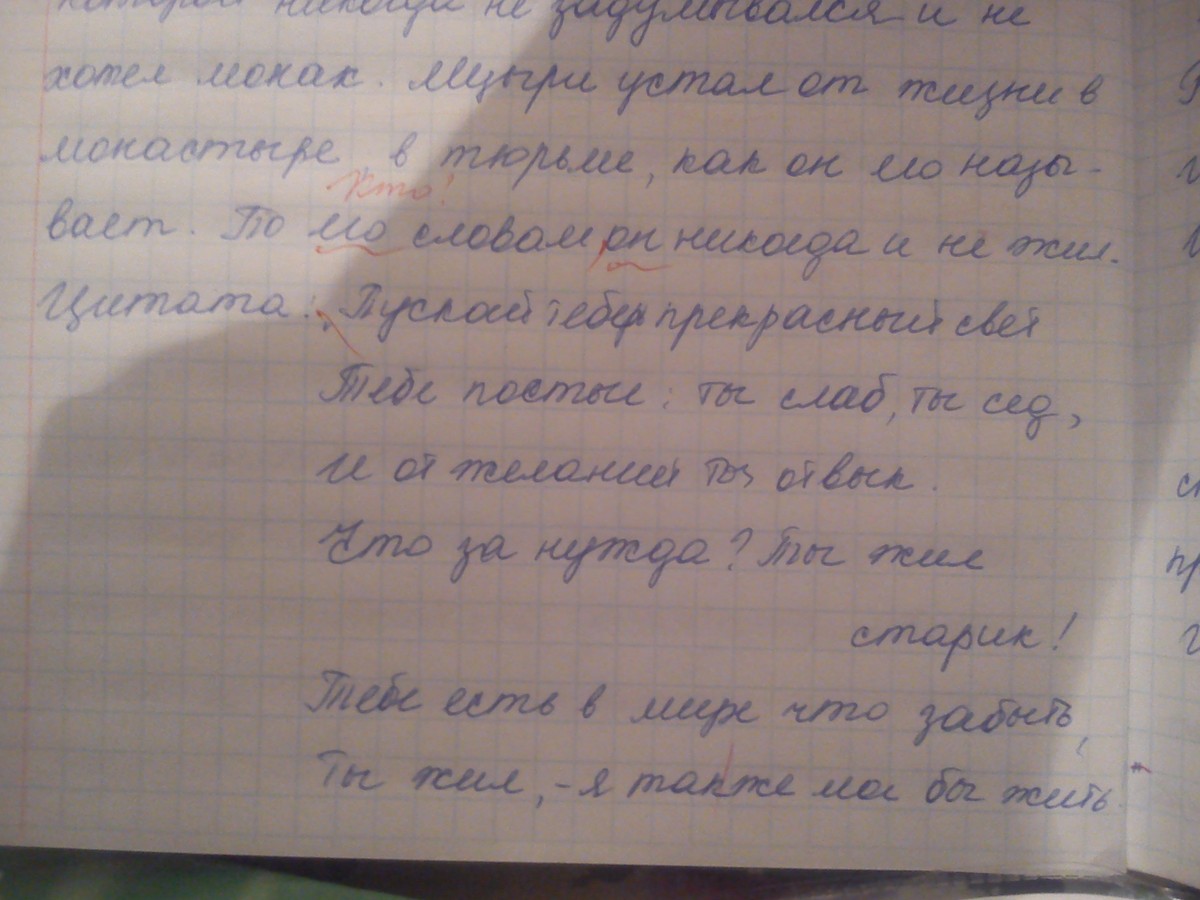 которой никогда не задумывался и не
хотел монах. Мцыри устал от жизни в
монастыре, в тюрьме, как он его назы-
вает. По его словам, он никогда и не жил.
Кто!
Цитата: „Пускай тебе прекрасный свет
Тебе постыл; ты слаб, ты сед,
И от желаний ты отвык.
Что за нужда? Ты жил
старик!
Тебе есть в мире что забыть,
Ты жил, - я также мог бы жить.